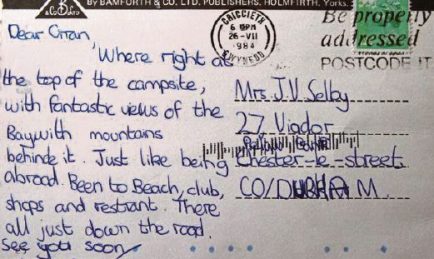 By BAMFORTH & CO. LTD. PUBLISHERS, HOLMFIRTH, Yorks.
CRICCIETH
6 PM
26-VII
1984
GWYNEDD
Be properly
addressed
POSTCODE IT
Dear Orran,
Where right at
the top of the campsite,
with fantastic views of the
Baywith mountains
behinde it. Just like being
abroad. Been to Beach, club,
shops and restrant. There
all just down the road.
See you soon
Mrs J.V Selby
27, Viador
Chester-le-street
CO/DURHAM.